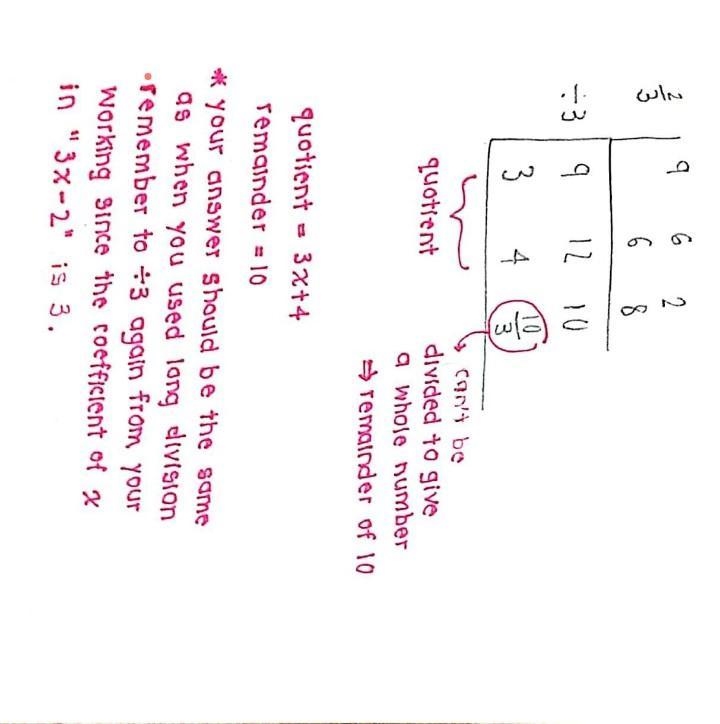 2/3 | 9 6 2
6 8
÷3 9 12 10
3 4 10/3
quotient
can't be
divided to give
a whole number
⇒ remainder of 10
quotient = 3x+4
remainder = 10
* your answer should be the same
as when you used long division
• remember to ÷3 again from your
working since the coefficient of x
in "3x-2" is 3.